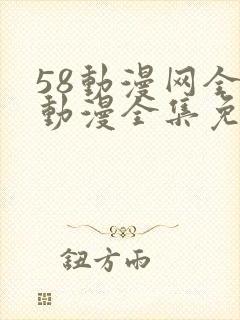 58動漫网全
動漫全集免
鈕方雨